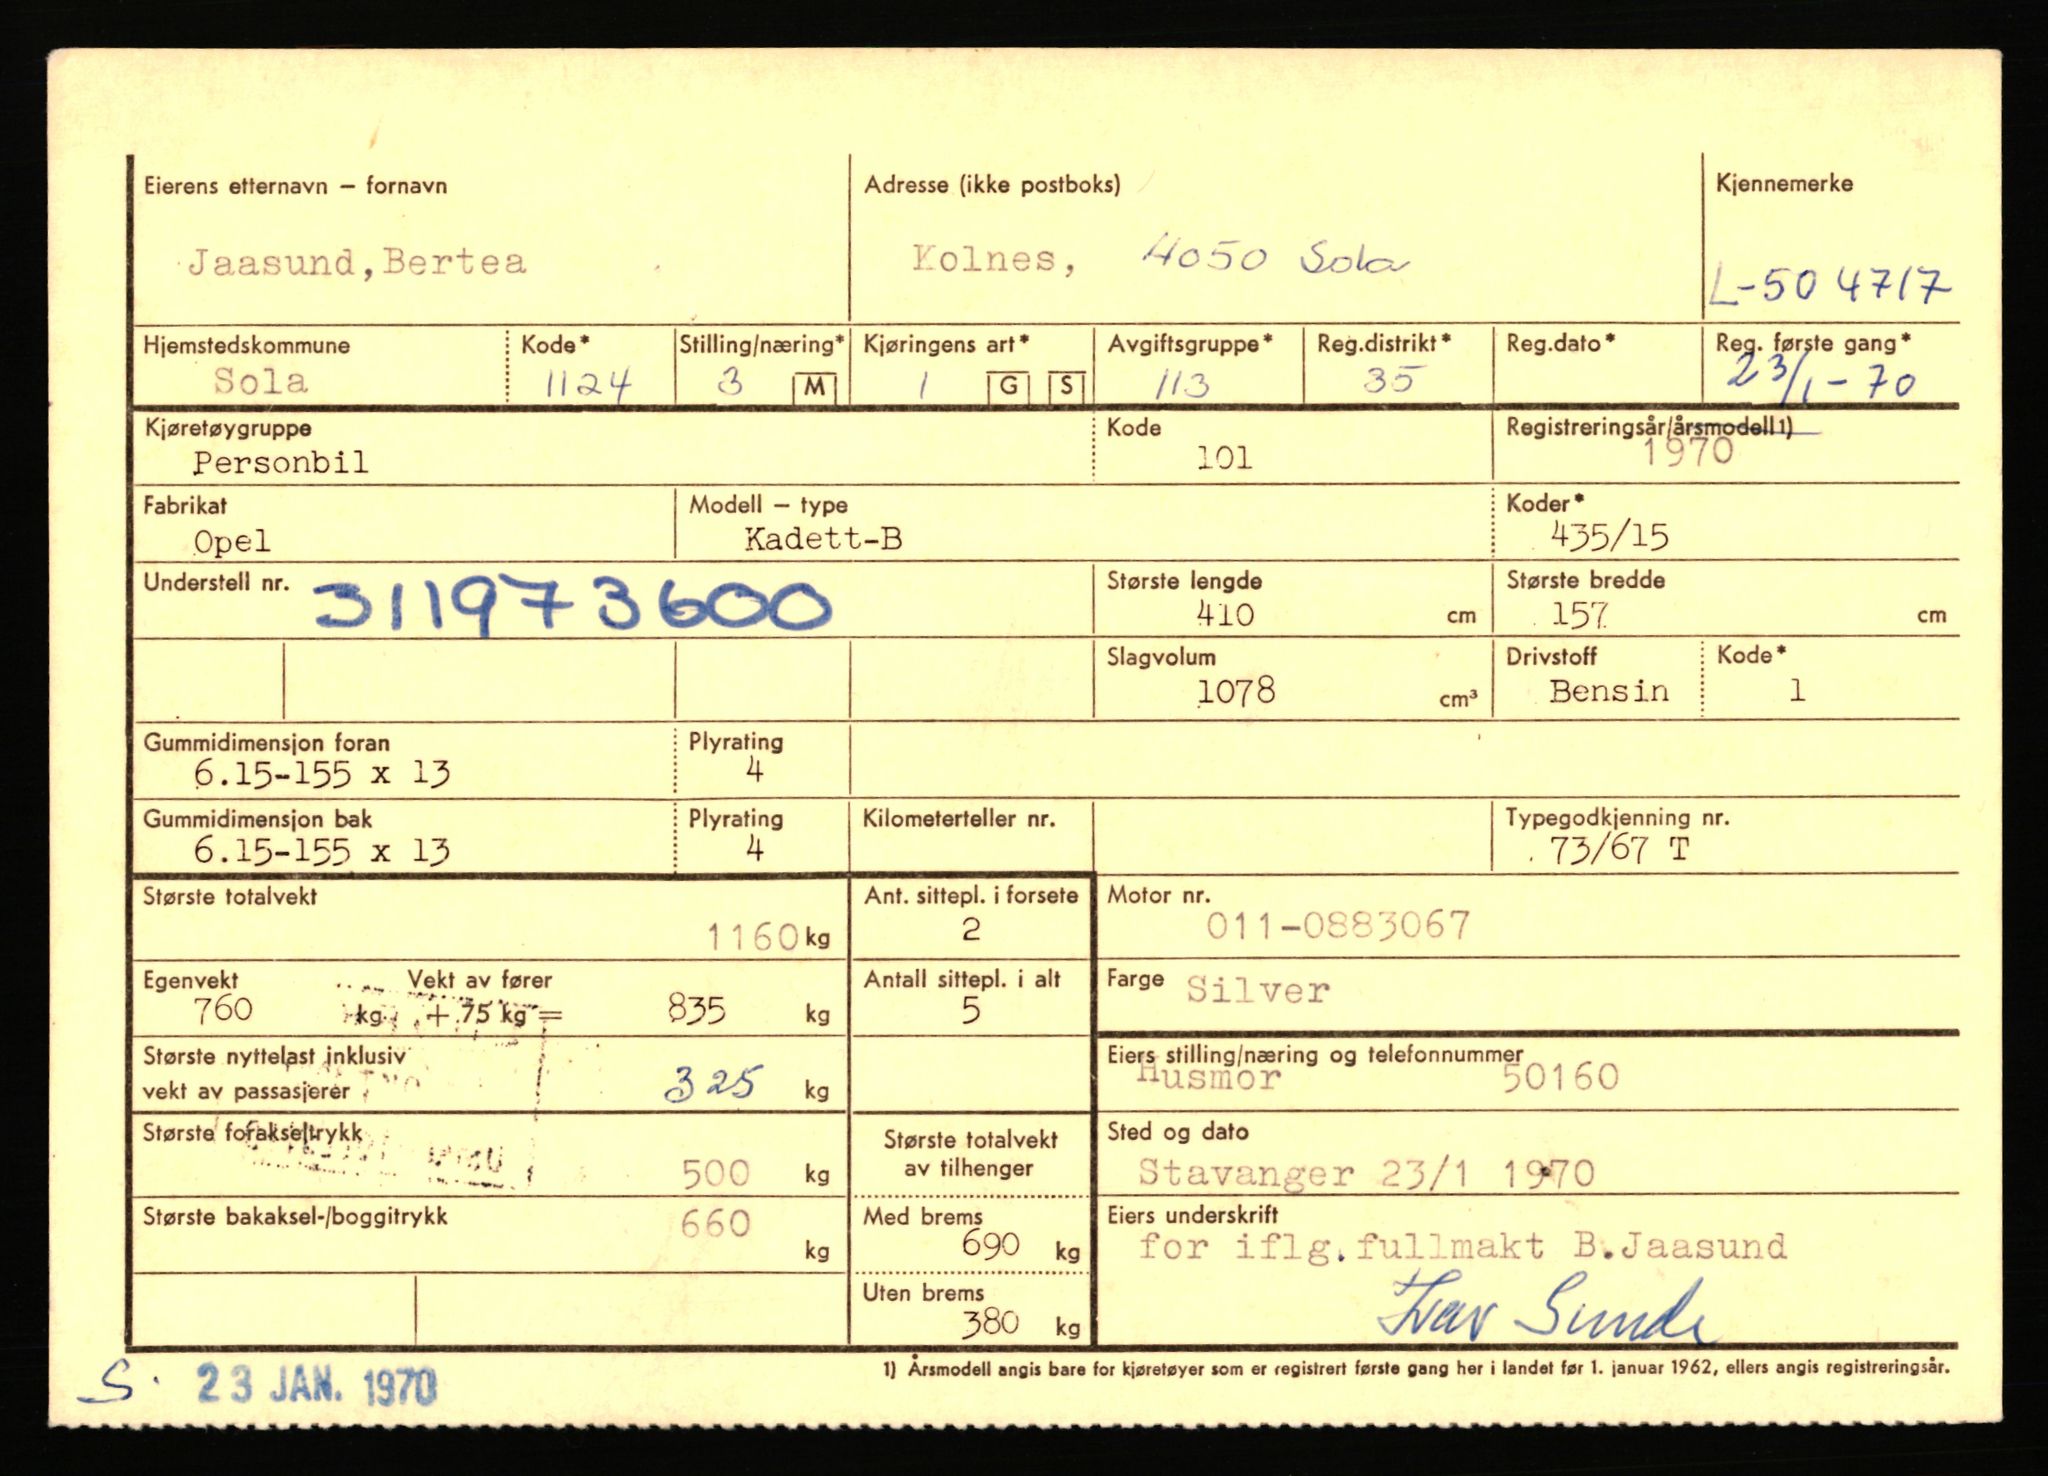 Eierens etternavn – fornavn
Jaasund,Bertea
Adresse (ikke postboks)
Kolnes, 4050 Sola
Kjennemerke
L-504717
Hjemstedskommune
Sola
Kode*
1124
Stilling/næring*
3 M
Kjøringens art*
1 G S
Avgiftsgruppe*
113
Reg.distrikt*
35
Reg.dato*
Reg. første gang*
23/1-70
Kjøretøygruppe
Personbil
Kode
101
Registreringsår/årsmodell1)
1970
Fabrikat
Opel
Modell – type
Kadett-B
Koder*
435/15
Understell nr. 311973600
Største lengde
410 cm
Største bredde
157 cm
Slagvolum
1078 cm³
Drivstoff
Bensin
Kode*
1
Gummidimensjon foran
6.15-155 x 13
Plyrating
4
Gummidimensjon bak
6.15-155 x 13
Plyrating
4
Kilometerteller nr.
Typegodkjenning nr.
73/67 T
Største totalvekt
1160 kg
Ant. sittepl. i forsete
2
Motor nr.
011-0883067
Egenvekt Vekt av fører
760 kg + 75 kg = 835 kg
Antall sittepl. i alt
5
Farge Silver
Største nyttelast inklusiv
vekt av passasjerer 325 kg
Eiers stilling/næring og telefonnummer
Husmor 50160
Største forakseltrykk
500 kg
Største totalvekt
av tilhenger
Sted og dato
Stavanger 23/1 1970
Største bakaksel-/boggitrykk 660
kg
Med brems
690 kg
Eiers underskrift
for iflg.fullmakt B.Jaasund
Ivar Sunde
Uten brems
380 kg
1) Årsmodell angis bare for kjøretøyer som er registrert første gang her i landet før 1. januar 1962, ellers angis registreringsår.
S. 23 JAN. 1970